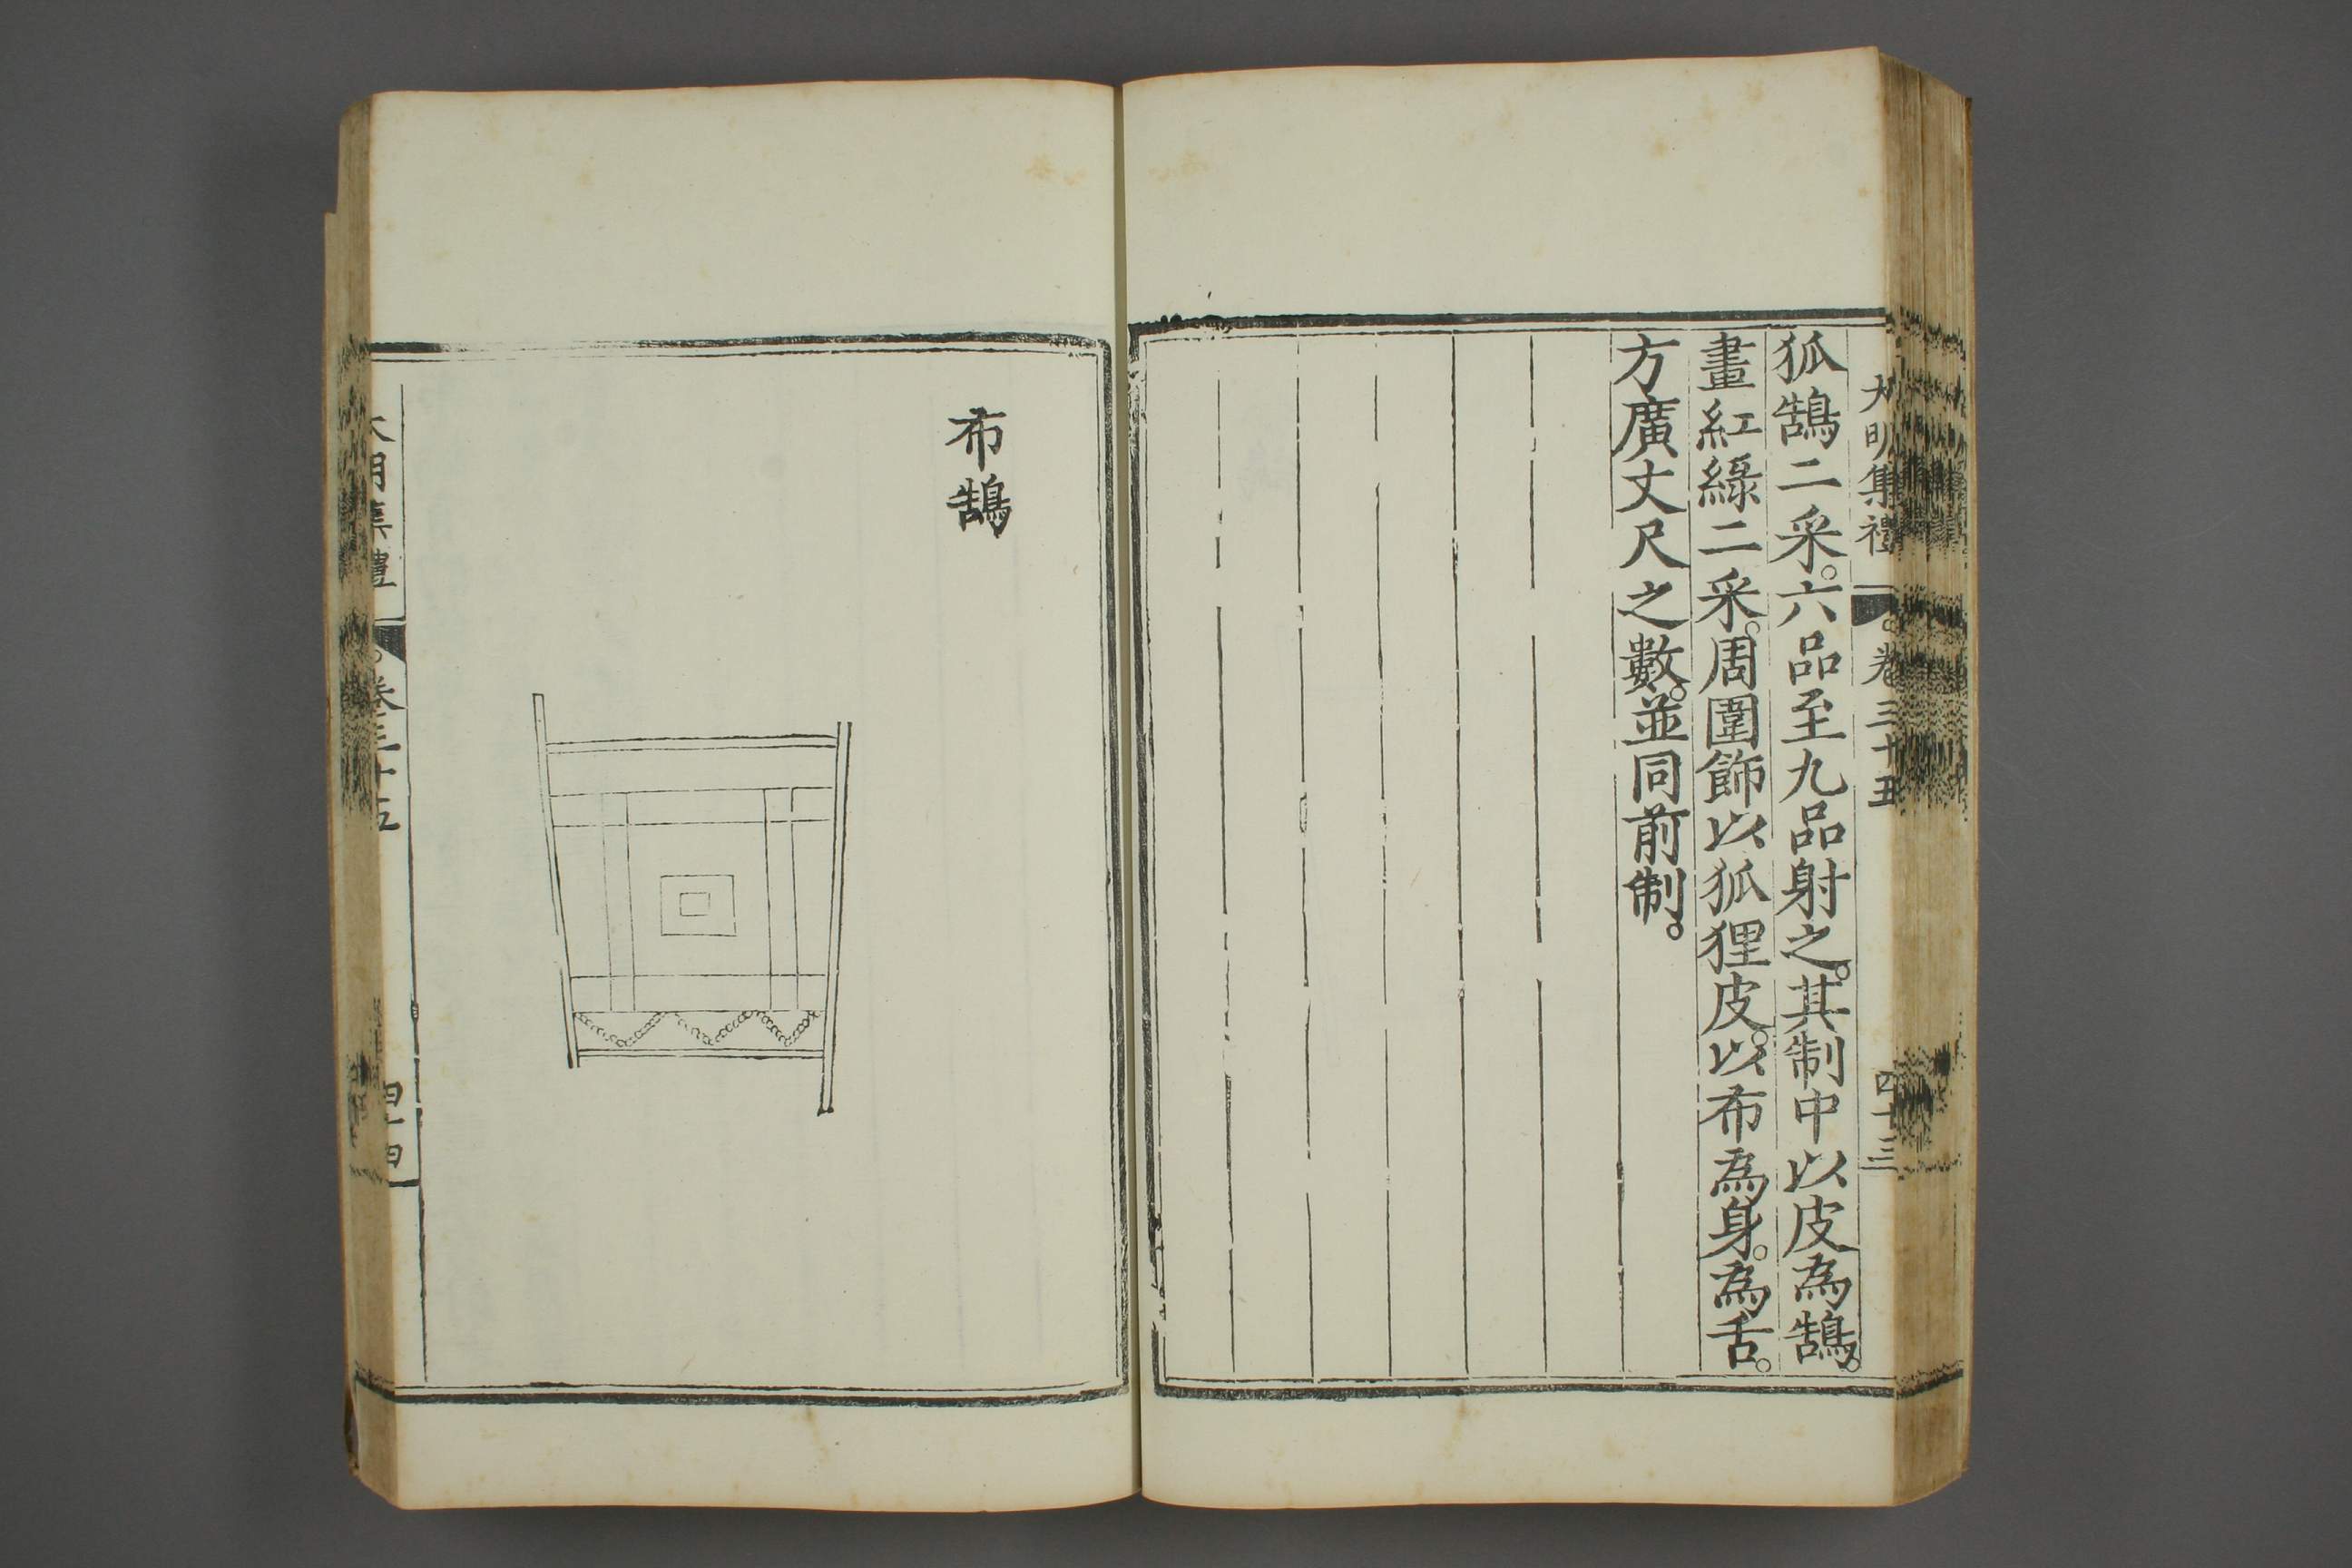 大明集禮
卷三十五
四十三
狐鵠二采。六品至九品射之。其制中以皮為鵠。
畫紅綠二采。周圍飾以狐狸皮。以布為身。為舌。
方廣丈尺之數。並同前制。
布鵠
大明集禮
卷三十五